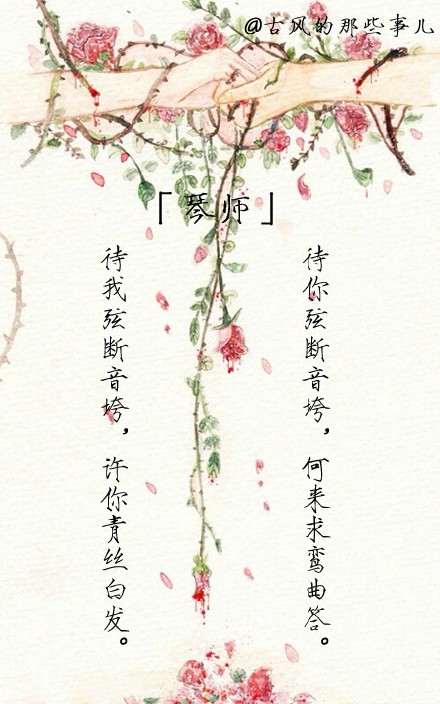 @古风的那些事儿
「琴师」
待你弦断音垮，何来求鸾曲答。
待我弦断音垮，许你青丝白发。